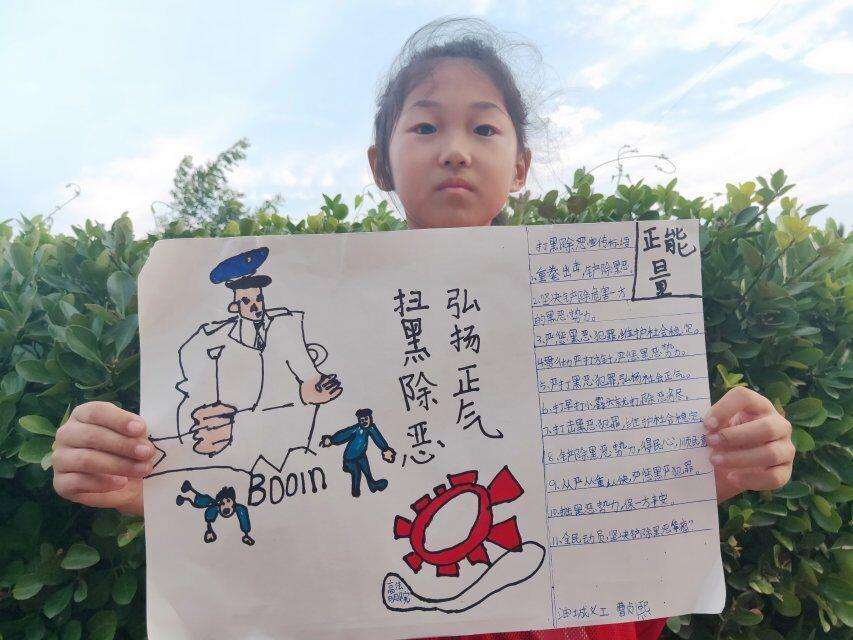 弘扬正气
扫黑除恶
BOOIn
正能
量
打黑除恶宣传标语
1.重拳出击,铲除黑恶
2.坚决铲除危害一方
的黑恶势力。
3.严惩黑恶犯罪,维护社会稳定。
严打方针,严惩黑恶势力。
5.严打黑恶犯罪弘扬社会正气。
6.打早打小露头就打除恶务尽。
7.打击黑恶犯罪,维护社会稳定
8.铲除黑恶势力,得民心,顺民意
9.从严从重从快,严惩黑恶犯罪。
10.黑恶势力,保一方平安。
11.全民动员,坚决铲除黑恶
油城义工 曹贞熙